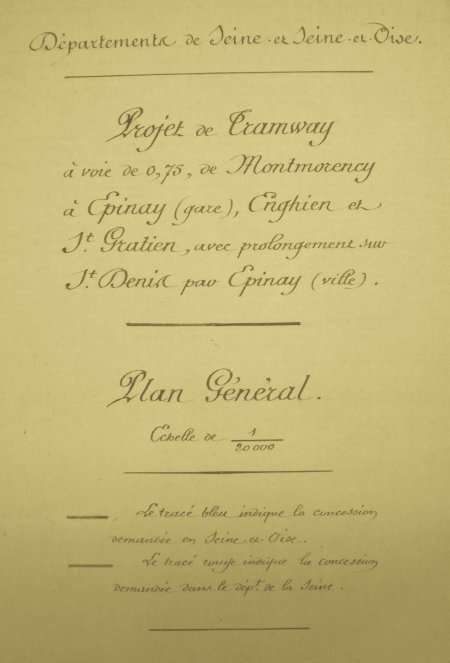 Départements de Seine-et-Seine-et-Oise.
Projet de Tramway
à voie de 0,75, de Montmorency
à Epinay (gare), Enghien et
St. Gratien, avec prolongement sur
St. Denis par Epinay (ville).
Plan Général.
Echelle de 1/20000
Le tracé bleu indique la concession
demandée en Seine-et-Oise.
Le tracé rouge indique la concession
demandée dans le dépt. de la Seine.